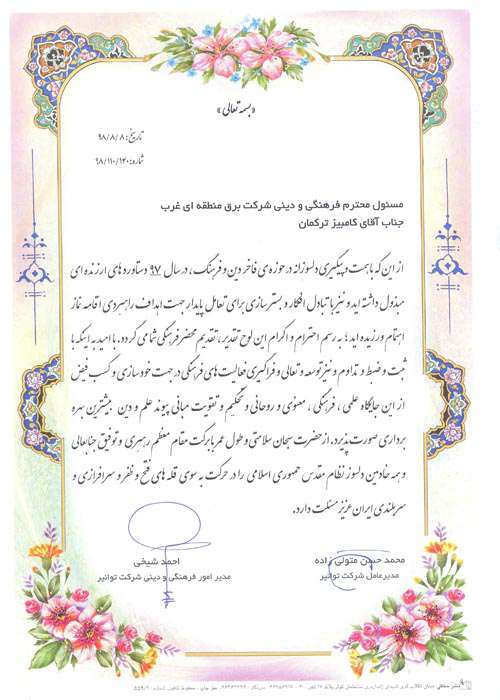 «بسمه تعالی»
تاریخ: ۹۸/۸/۸
شماره: ۹۸/۱۱۰/۱۲۰
مسئول محترم فرهنگی و دینی شرکت برق منطقه ای غرب
جناب آقای کامبیز ترکمان
از این که با همت و پیگیری دلسوزانه در حوزه ی فاخر دین و فرهنگ، در سال ۹۷ دستاوردهای ارزنده ای
مبذول داشته اید و نیز با تبادل افکار و بسترسازی برای تعامل پایدار جهت اهداف راهبردی اقامه نماز
اهتمام ورزیده اید؛ به رسم احترام و اکرام این لوح تقدیر، تقدیم محضر فرهنگی شما می گردد. با امید به اینکه با
ثبت و ضبط و تداوم و نیز توسعه و تعالی و فراگیری فعالیت های فرهنگی در جهت خودسازی و کسب فیض
از این جایگاه علمی، فرهنگی، معنوی و روحانی و تحکیم و تقویت مبانی پیوند علم و دین بیشترین بهره
برداری صورت پذیرد. از حضرت سبحان سلامتی و طول عمر با برکت مقام معظم رهبری و توفیق جنابعالی
و همه خادمین دلسوز نظام مقدس جمهوری اسلامی را در حرکت به سوی قله های فتح و ظفر و سرافرازی و
سربلندی ایران عزیز مسئلت دارد.
محمد حسن متولی زاده
مدیرعامل شرکت توانیر
احمد شیخی
مدیر امور فرهنگی و دینی شرکت توانیر